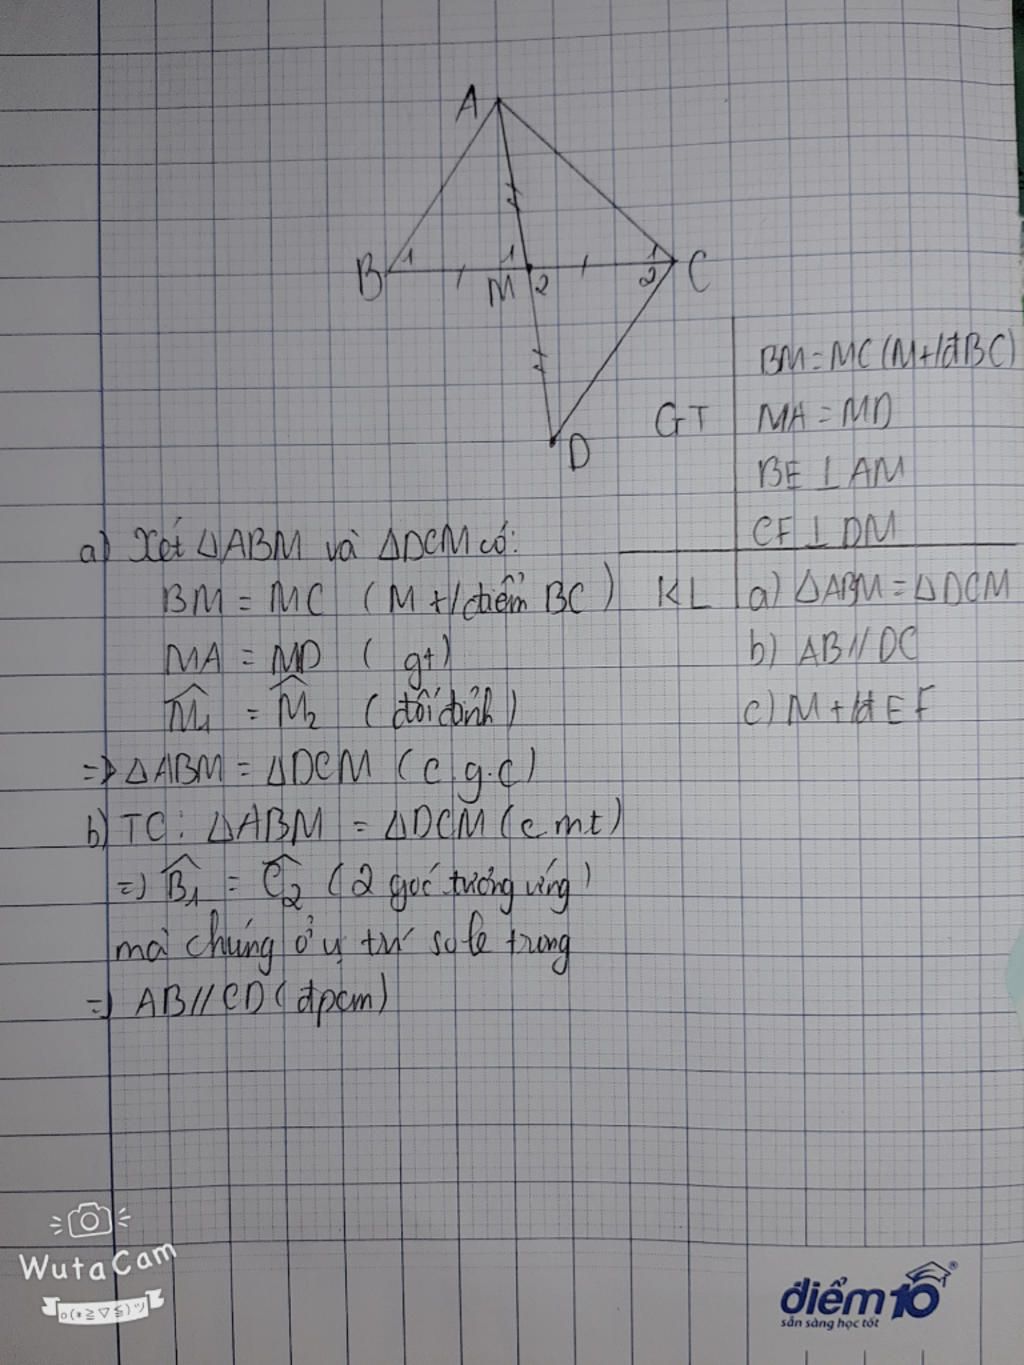 A
B
1
1
M
2
1
2
C
D
GT
BM = MC (M t/đ BC)
MA = MD
BE ⊥ AM
CF ⊥ DM
KL
a) △ABM = △DCM
b) AB // DC
c) M t/đ EF
a) Xét △ABM và △DCM có:
BM = MC (M t/điểm BC)
MA = MD (gt)
M̂₁ = M̂₂ (đối đỉnh)
=> △ABM = △DCM (c.g.c)
b) TC: △ABM = △DCM (cmt)
=) B̂₁ = Ĉ₂ (2 góc tương ứng)
mà chúng ở vị trí so le trong
=) AB // CD (đpcm)
WutaCam
o(*≧▽≦)ツ
điểm 10
®
sẵn sàng học tốt